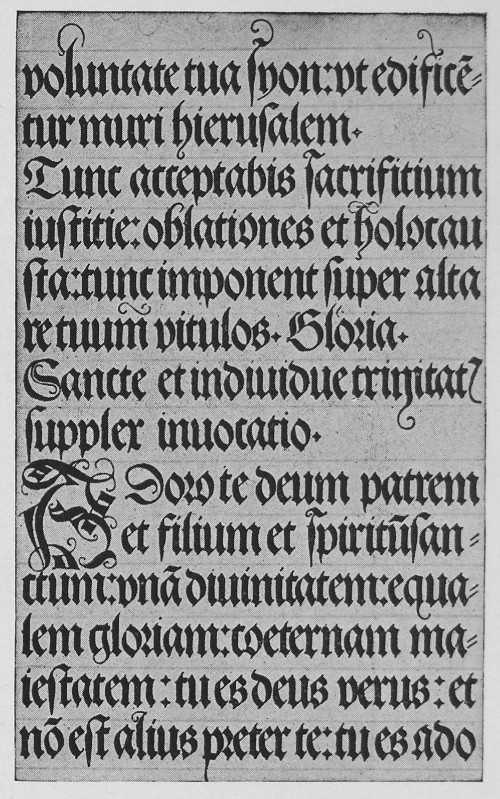 voluntate tua ſyon: vt edificē-
tur muri hieruſalem.
Tunc acceptabis ſacrifitium
iuſtitie: oblationes et holocau
ſta: tunc imponent ſuper alta
re tuum̄ vitulos. Gloria.
Sancte et indiuidue trinitatꝭ
ſupplex inuocatio.
ADoro te deum patrem
et filium et ſpiritūſan-
ctum: vnā diuinitatem: equa-
lem gloriam: coeternam ma-
ieſtatem: tu es deus verus: et
nō eſt alius preter te: tu es ado